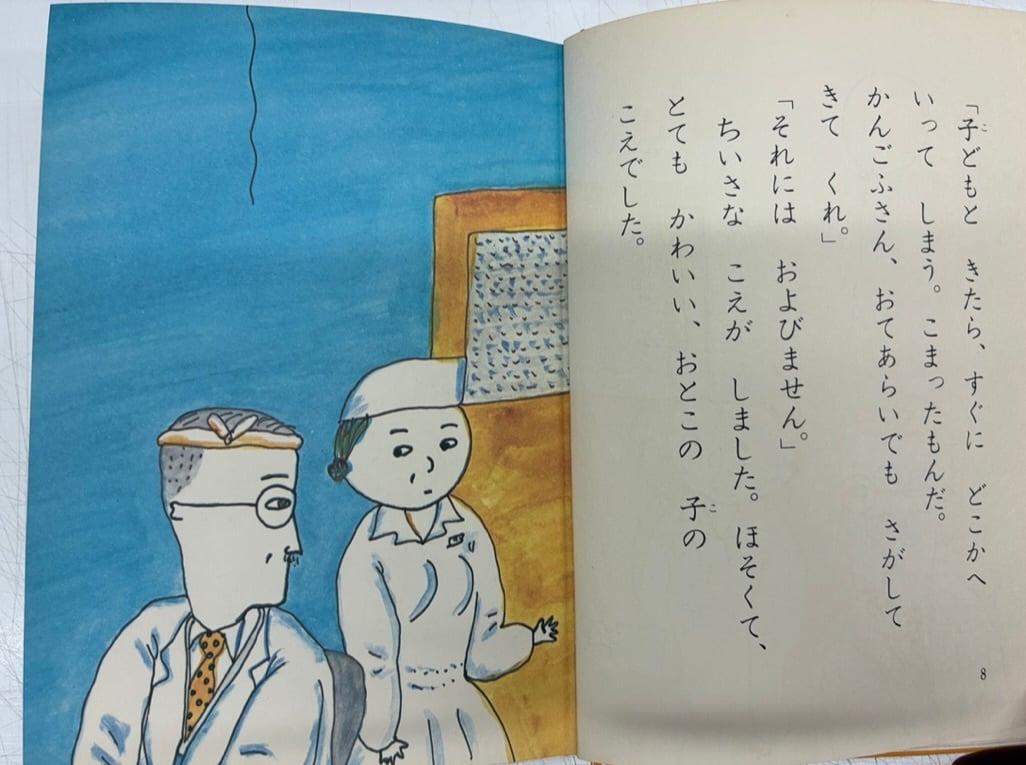 「子どもと きたら、すぐに どこかへ
いって しまう。こまったもんだ。
かんごふさん、おてあらいでも さがして
きて くれ。」
「それには およびません。」
ちいさな こえが しました。ほそくて、
とても かわいい、おとこの 子の
こえでした。
8